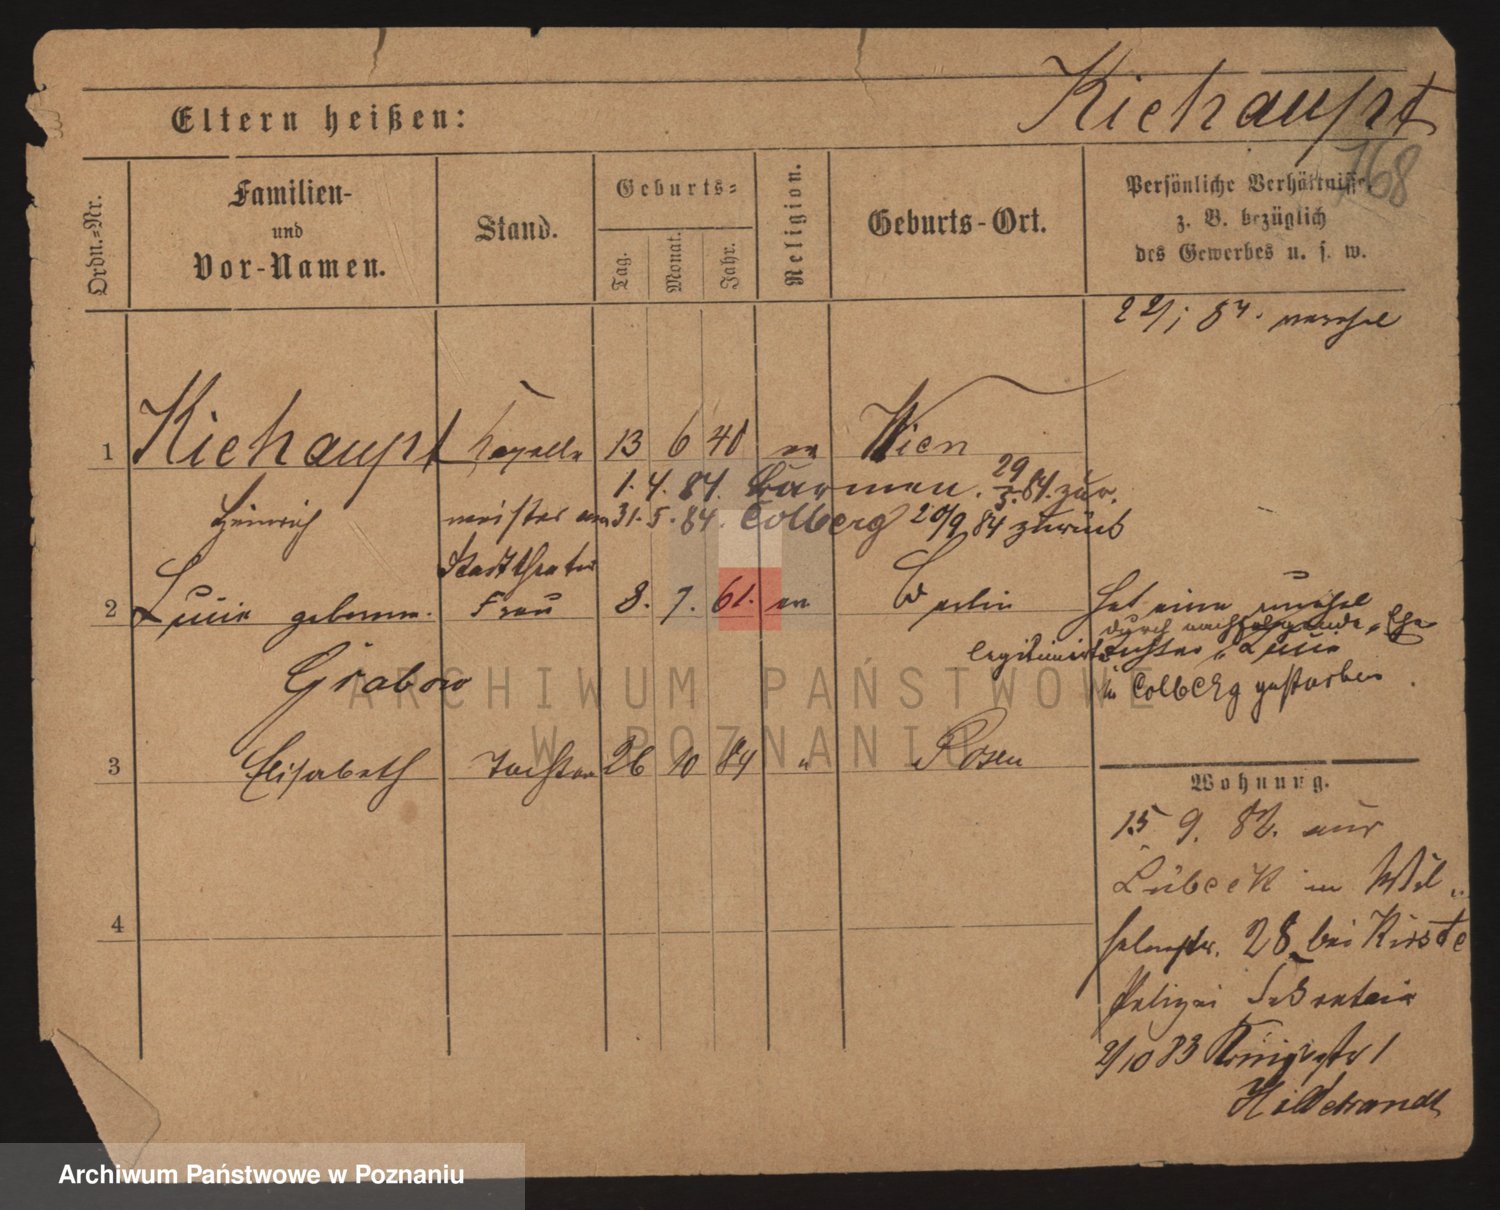 Kiehaupt
Eltern heißen:
168
Ordn.-Nr.
Familien-
und
Vor-Namen.
Stand.
Geburts-
Tag.
Monat.
Jahr.
Religion.
Geburts-Ort.
Persönliche Verhältnisse
z. B. bezüglich
des Gewerbes u. s. w.
1 Kiehaupt Kapell 13 6 40 ev Wien
1. 4. 84. Barmen. 29/5. 84. zur.
Heinrich meister am 31. 5. 84. Colberg 20/9 84 zurück
Stadttheater
2 Lucie geborene. Frau 8. 7. 61. ev Berlin
Hat eine unehel
durch nachfolgende Ehe
legitimirte Tochter Lucie
in Colberg gestorben.
Grabow
3 Elisabeth Tochter 26 10 84 " Posen
Wohnung.
15 9. 82. aus
Lübeck in Wil-
helmstr. 28 bei Kirste
Polizei Sekretair
2/10 83 Königsstr 1
Hildebrandt
4
ARCHIWUM PAŃSTWOWE
W POZNANIU
Archiwum Państwowe w Poznaniu